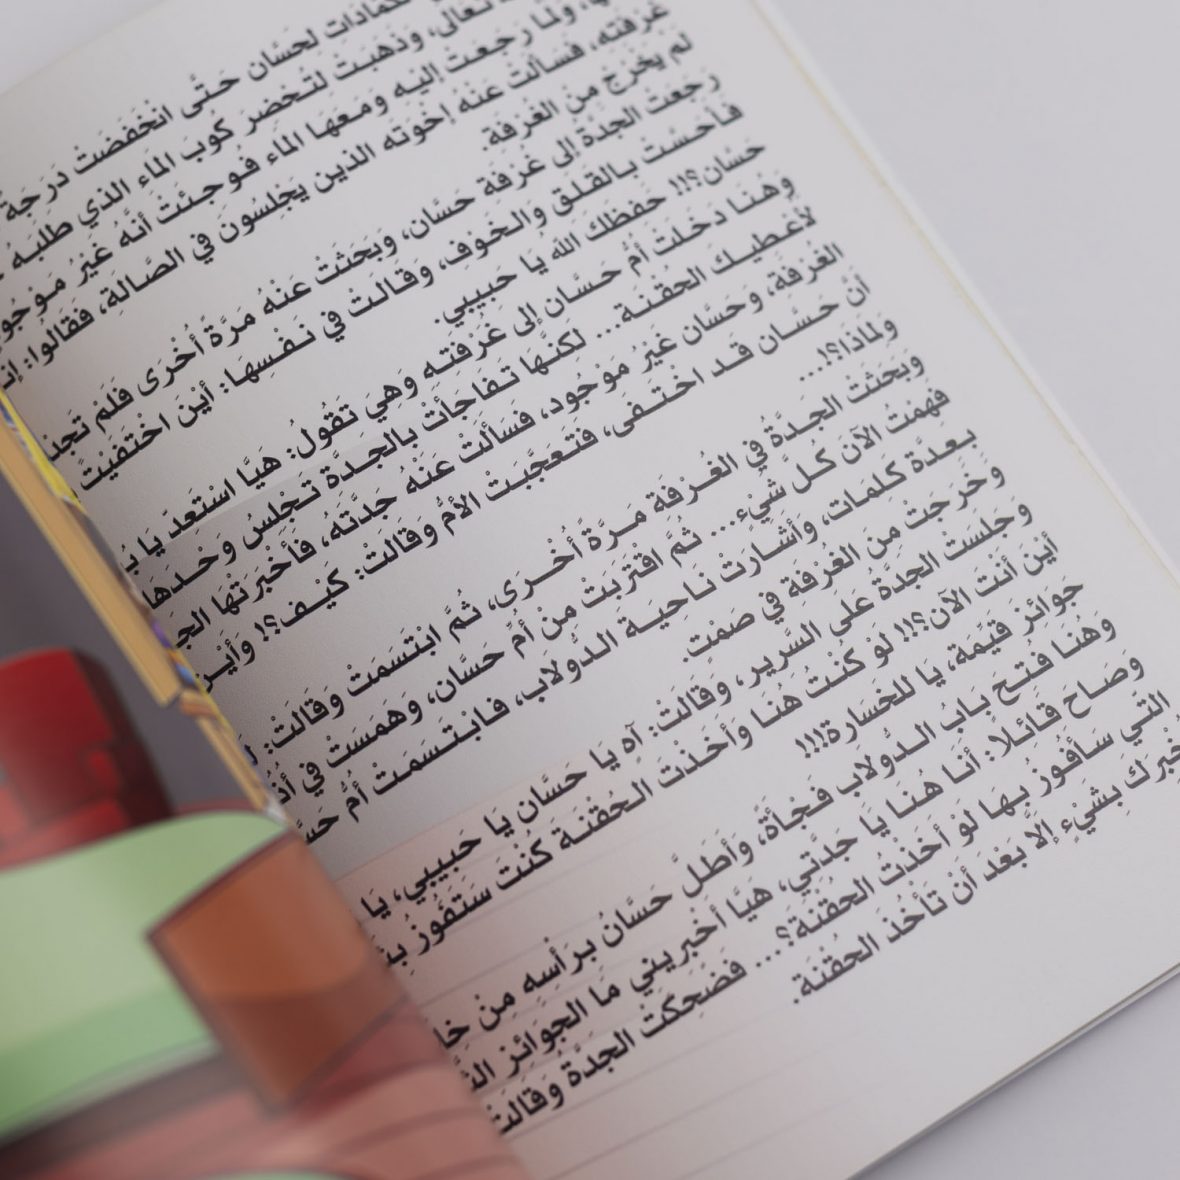 كمادات لحسان حَتَّى انْخَفَضَتْ دَرَجَةُ
تعالى، وَذَهَبَتْ لتُحْضِرَ كُوبَ المَاء الذي طَلَبهُ
، ولمَّا رَجَعتْ إليْه وَمَعهَا الماء فُوجئَتْ أنَّه غَيْرُ مَوْجُو
غُرْفته، فَسَألتْ عَنْهُ إخْوَته الذين يَجْلِسُونَ في الصَّالةِ، فقَالوا:
لَم يَخْرجْ منْ الغُرفَة.
رجَعتْ الجدَّةُ إلى غُرْفَة حسَّان، وَبَحَثتْ عَنْهُ مَرَّةً أُخْرَى فَلَمْ تَجِدْ
فأحَسَّتْ بالقَلَق وَالخَوْفِ، وَقَالتْ في نَفْسِهَا: أيْنَ اخْتَفَيْتَ
حَسَّان؟!! حَفظَكَ الله يَا حَبيبي.
وَهُنَا دَخَلتْ أمُّ حَسَّان إلى غُرْفَتَه وَهِيَ تَقُولُ: هَيَّا اسْتَعدّ يَا
لأُعْطيكَ الحُقْنَة... لكِنَّهَا تَفَاجَأتْ بالجَدَّة تَجْلِسُ وَحْدهَا
الغُرفَة، وَحَسَّان غَيْرُ مَوْجُود، فَسَألَتْ عَنْهُ جَدَّتَهُ، فأخْبَرَتها
أنَّ حَسَّان قَد اخْتَفَى، فَتَعَجَّبَت الأمُّ وقَالَتْ: كَيْف؟! وأيْنَ
وَلماذا؟!...
وَبَحَثَت الجَدَّة في الغُرْفَة مَرَّةً أُخْرَى، ثُمَّ ابْتَسَمَتْ وَقَالَتْ:
فَهِمْتُ الآن كُلَّ شَيْء... ثُمَّ اقْتَرَبَتْ مِنْ أمِّ حَسَّان، وَهَمَسَتْ في
بعدَّة كَلمَات، وَأشَارتْ نَاحيَة الدولاب، فَابْتَسَمَتْ أمُّ
وَخَرجَتْ مِنَ الغُرْفَةِ في صَمْتٍ.
وَجَلسَت الجدَّة على السَّرير، وَقَالتْ: آه يَا حَسَّان يَا حَبيبي، يَا
أينَ أنْتَ الآن؟!! لَو كُنْتَ هُنَا وَأخَذْتَ الحُقْنَة كُنْتَ سَتَفُوزُ
جوائز قَيّمة، يَا للخسَارة!!!
وَهُنَا فُتِحَ بَابُ الدولاب فَجْأةً، وَأطَلَّ حَسَّانُ برَأْسِه مِنْ
وَصَاح قَائلاً: أنَا هُنَا يَا جَدَّتي، هَيَّا أخْبريني مَا الجَوَائز
التي سَأفُوزُ بهَا لَو أخَذْتُ الحُقْنَة؟... فضَحِكَتْ الجدَّةُ وَقَالَتْ
بِشَيْءٍ إلاَّ بَعْدَ أنْ تَأْخُذَ الحُقْنَة.